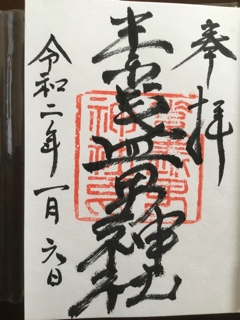 奉拝
素盞男神社
令和二年一月六日